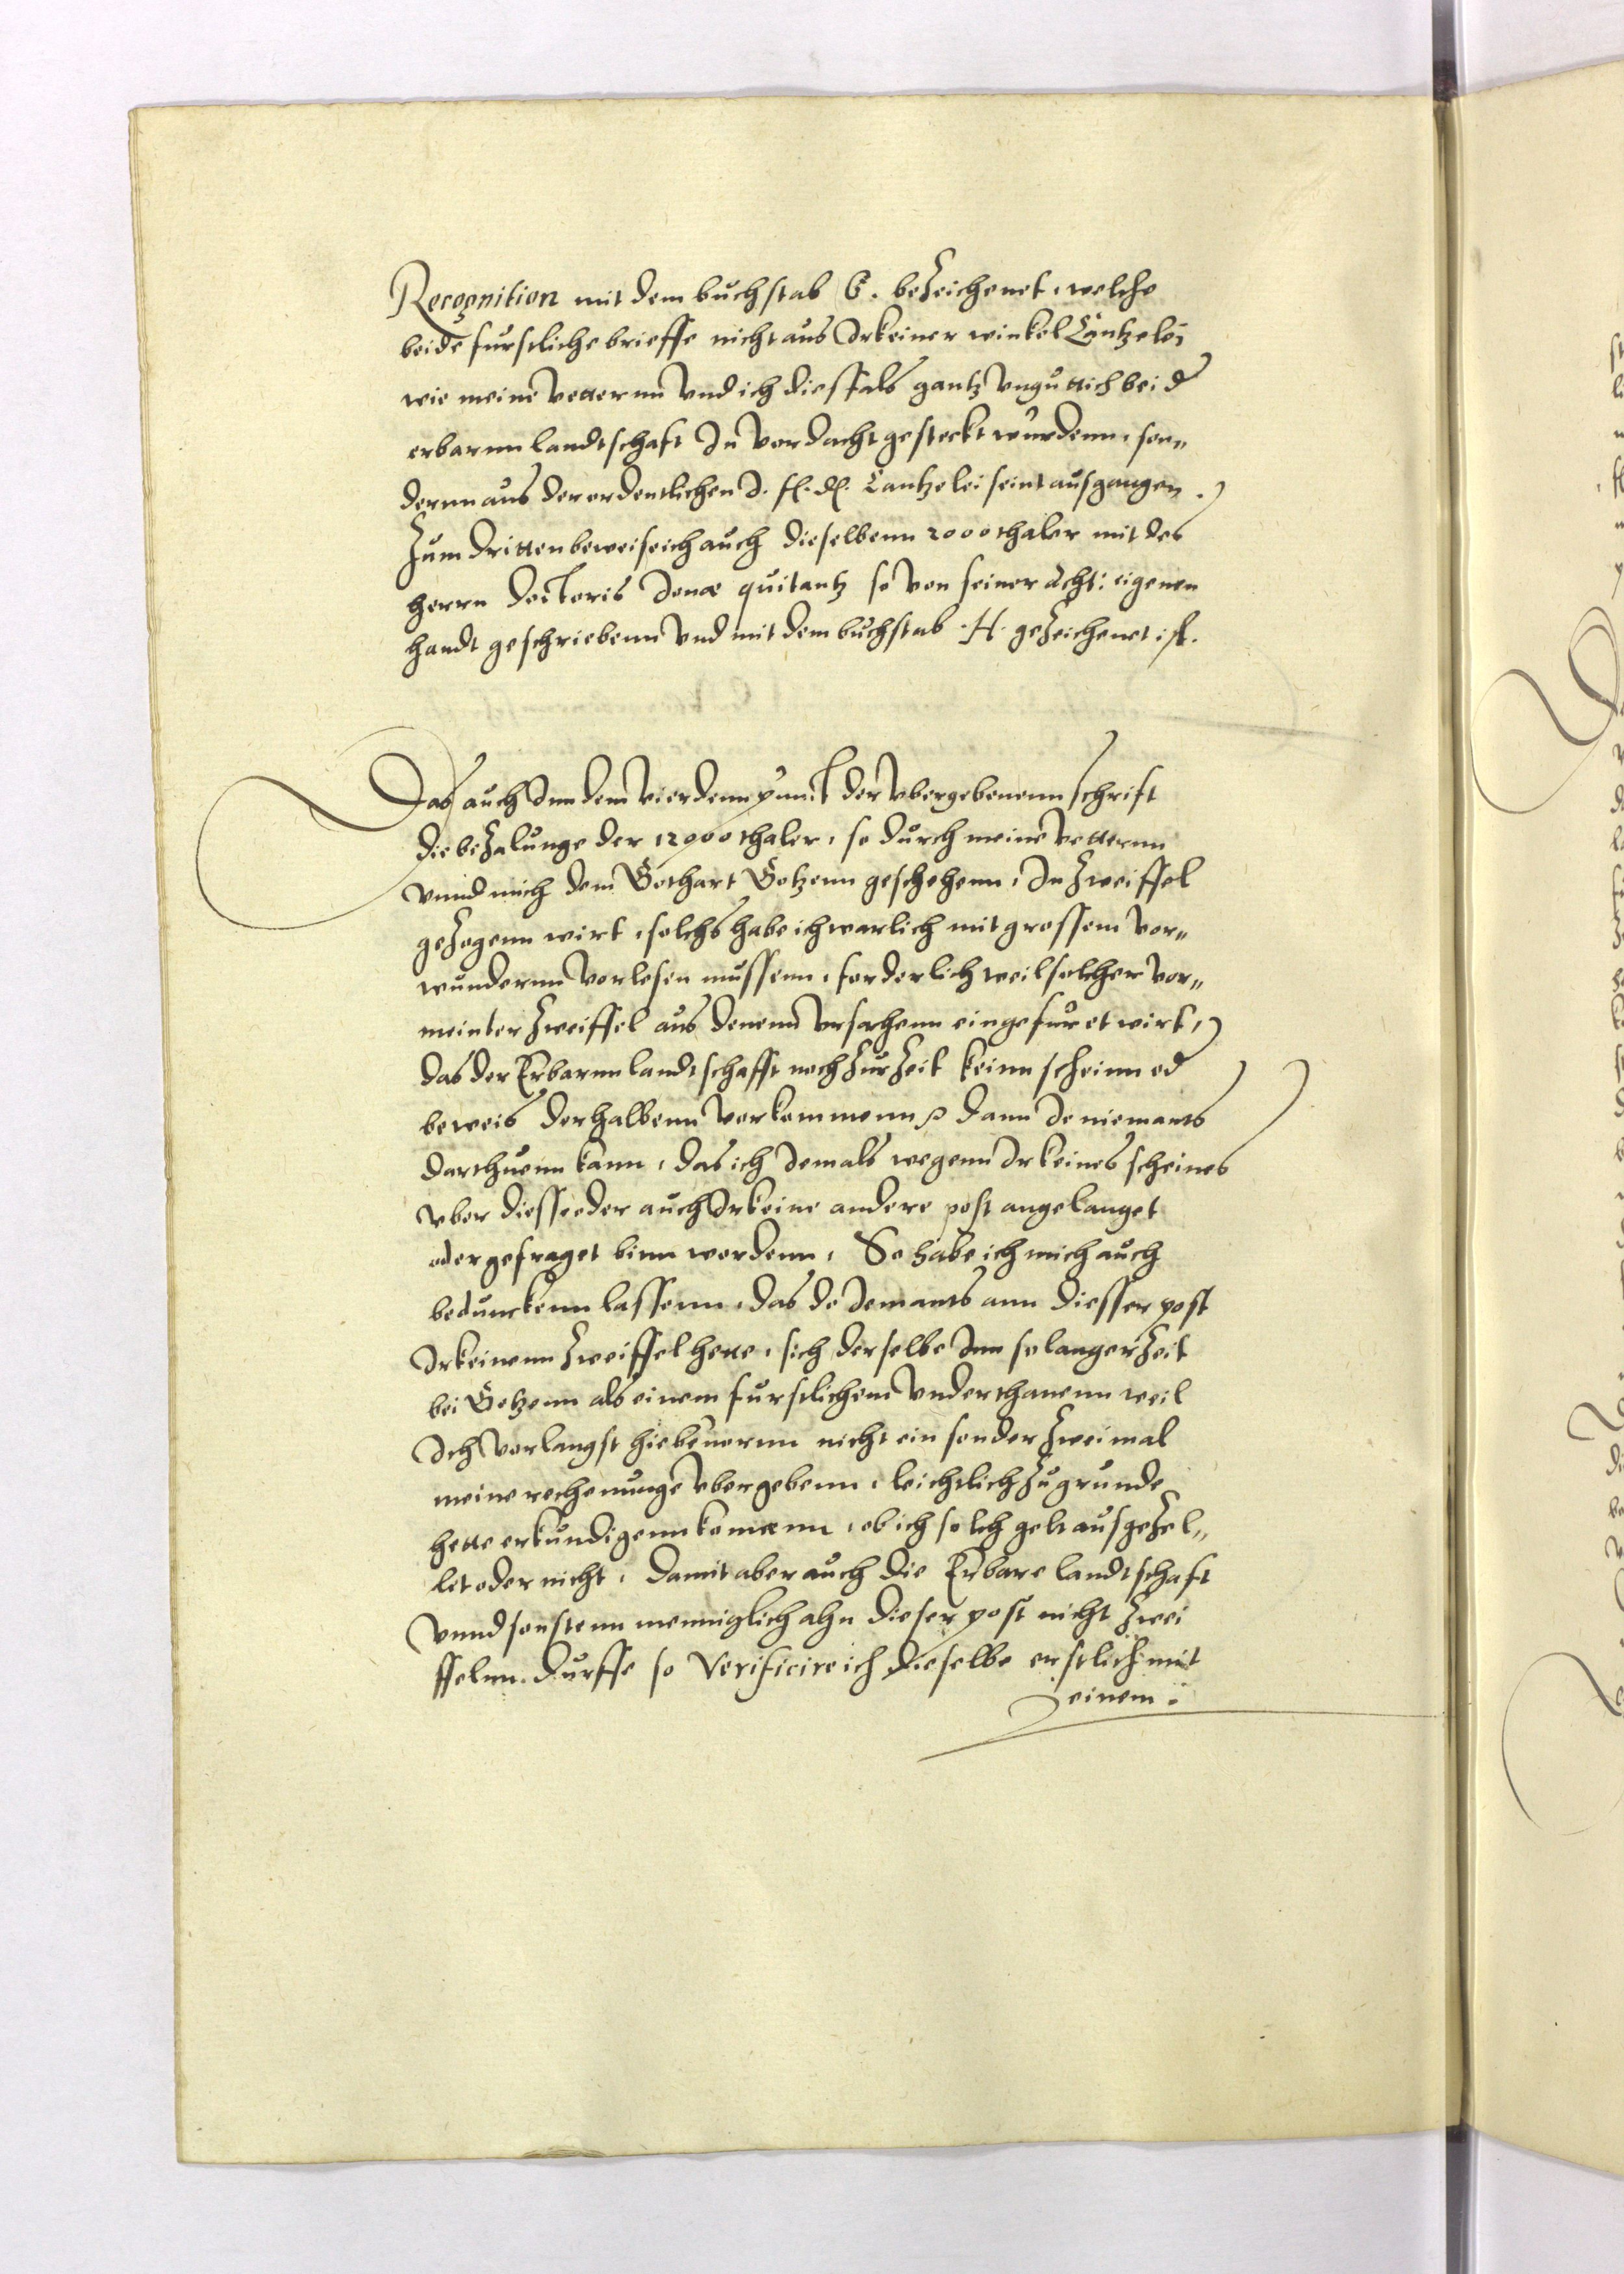 Recognition mit dem buchstab G. bezeichenet, welche
beide furstliche brieffe nicht aus Irkeiner winkel Cantzelei
wie meine vetternn vnd ich diesfals gantz vngutlich bei d
erbarnn landtschaft In vordacht gesteckt wurdenn, son„
dernn aus der ordentlichen J. f. d. Cantzelei seint ausgangen.
Zum dritten beweise ich auch dieselbenn 2000 thaler mit des
herrn doctoris Jonæ quitantz so von seiner acht: eigenen
handt geschriebenn vnd mit dem buchstab .H. gezeichenet ist.
Das auch Inn dem vierdenn punct der vbergebenenn schrift
die bezalunge der 12000 thaler, so durch meine vetternn
vnnd mich dem Gothart Götzenn geschehenn, In zweiffel
gezogenn wirt, solchs habe ich warlich mit grossem vor„
wundernn vorlesen mussenn, forderlich weil solcher vor„
meinter zweiffel aus denenn vrsachenn eingefuret wirt,
das der Erbarnn landtschafft noch zur Zeit keinn scheinn od
beweis derhalbenn vorkommenn, dann Je niemants
darthuenn kann, das ich Jemals wegenn Irkeines scheines
vber diesse oder auch Irkeine andere post angelanget
oder gefraget binn wordenn, So habe ich mich auch
beduncken lassenn, das do Jemants ann diesser post
Irkeinenn zweiffel hette, sich derselbe Inn so langer Zeit
bei Götzenn als einem furstlichenn vnderthanenn weil
Ich vorlangst hiebeuornn nicht ein sonder zweimal
meine rechenunge vbergebenn, leichtlich zu grunde
hette erkundigenn konnenn, ob ich solch gelt ausgezel„
let oder nicht, damit aber auch die Erbare landtschaft
vnnd sonstenn menniglich ahn dieser post nicht zwei
ffelnn durffe so Verificire ich dieselbe erstlich mit
einem